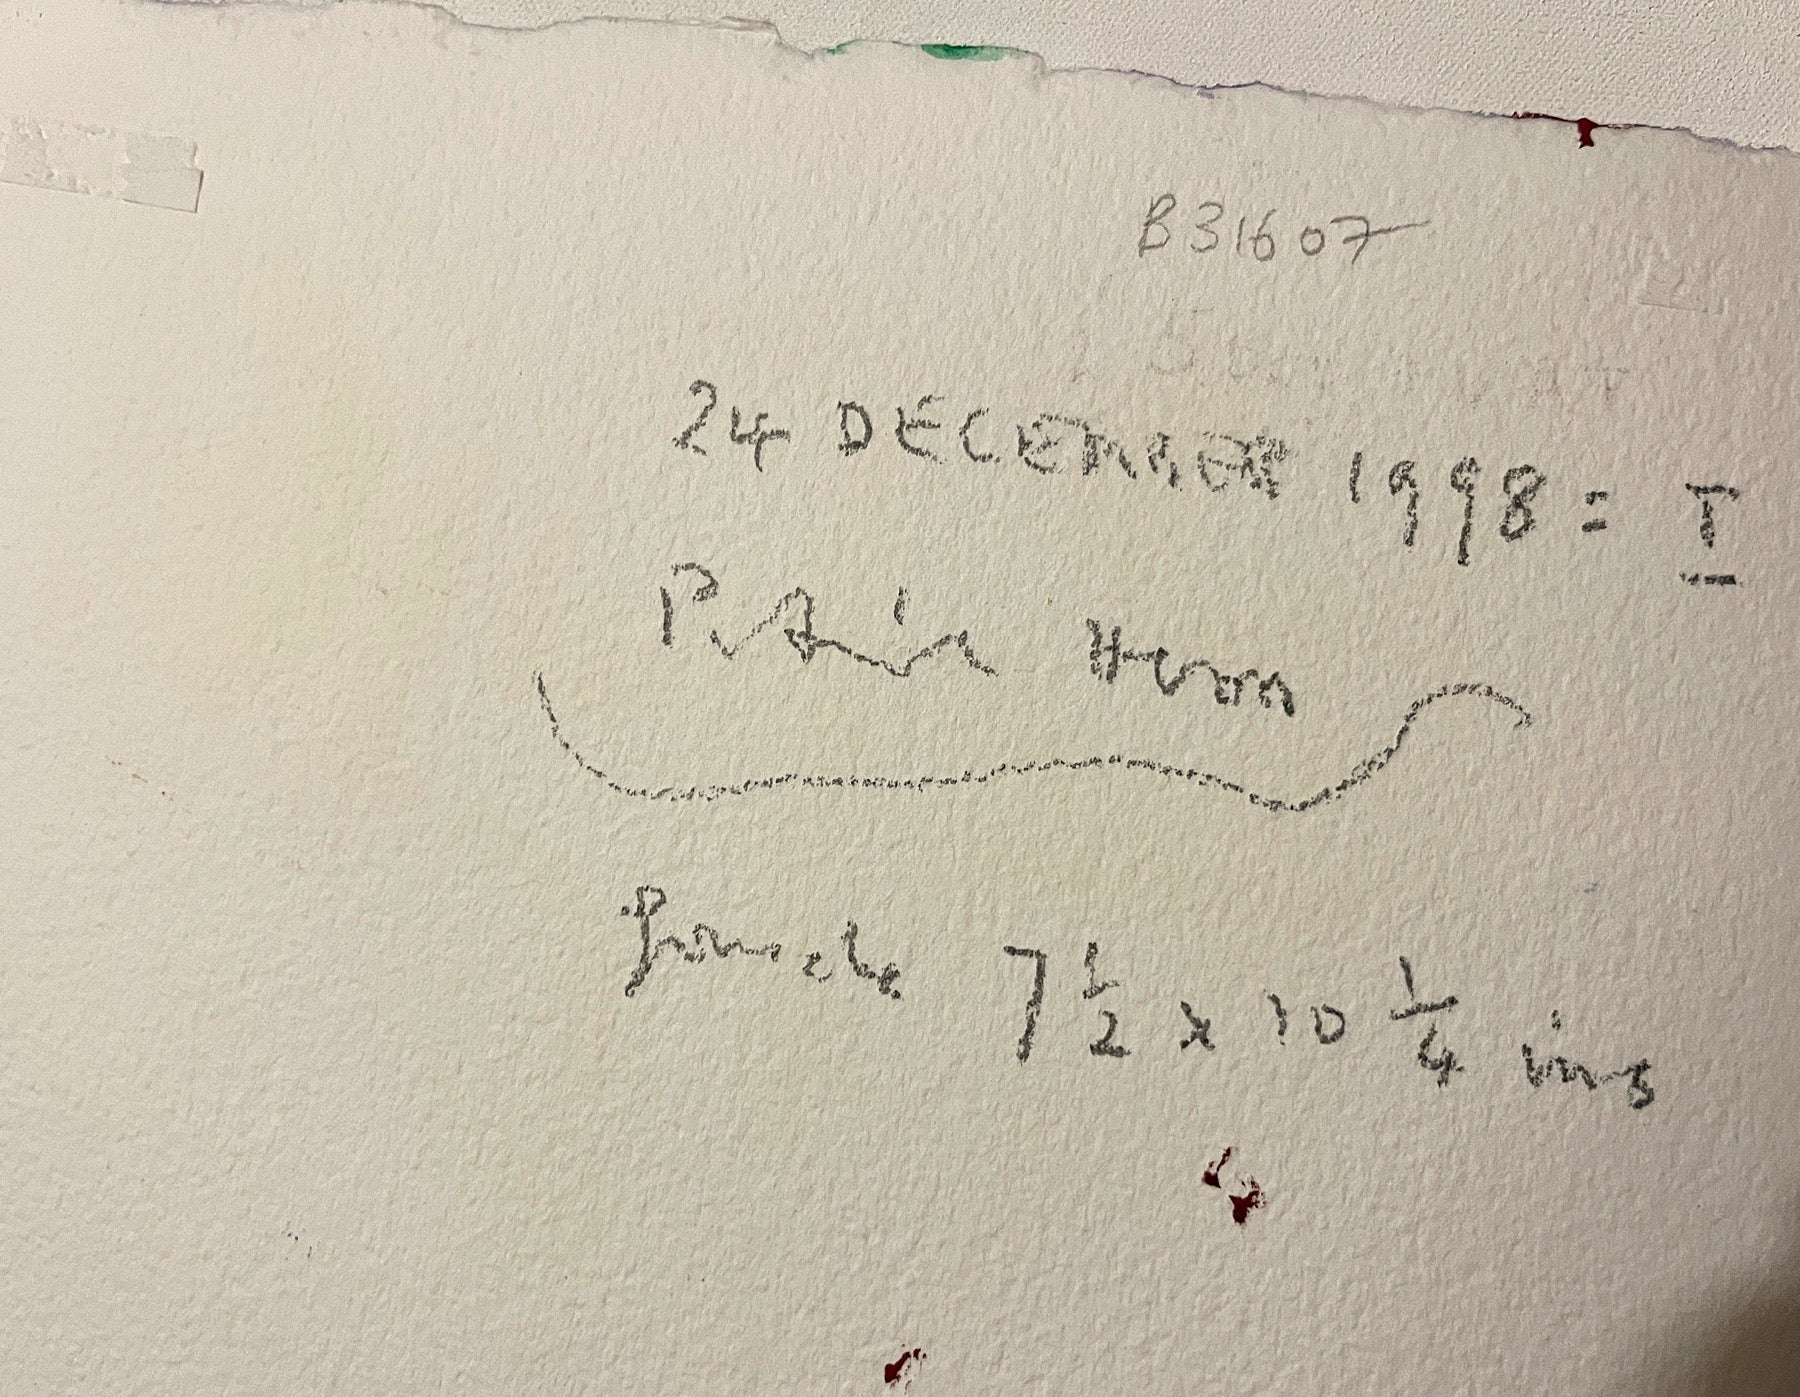 B31607
24 DECEMBER 1998 = I
Patrick Heron
gouache 7 1/2 x 10 1/4 ins